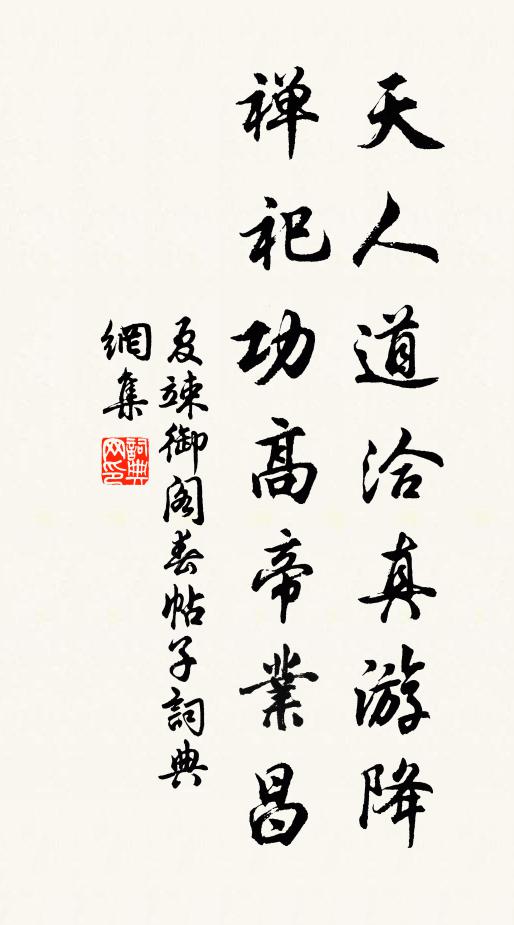 天人道洽真游降
禅祀功高帝業昌
夏竦御阁春帖子詞典
網集
詞典网印